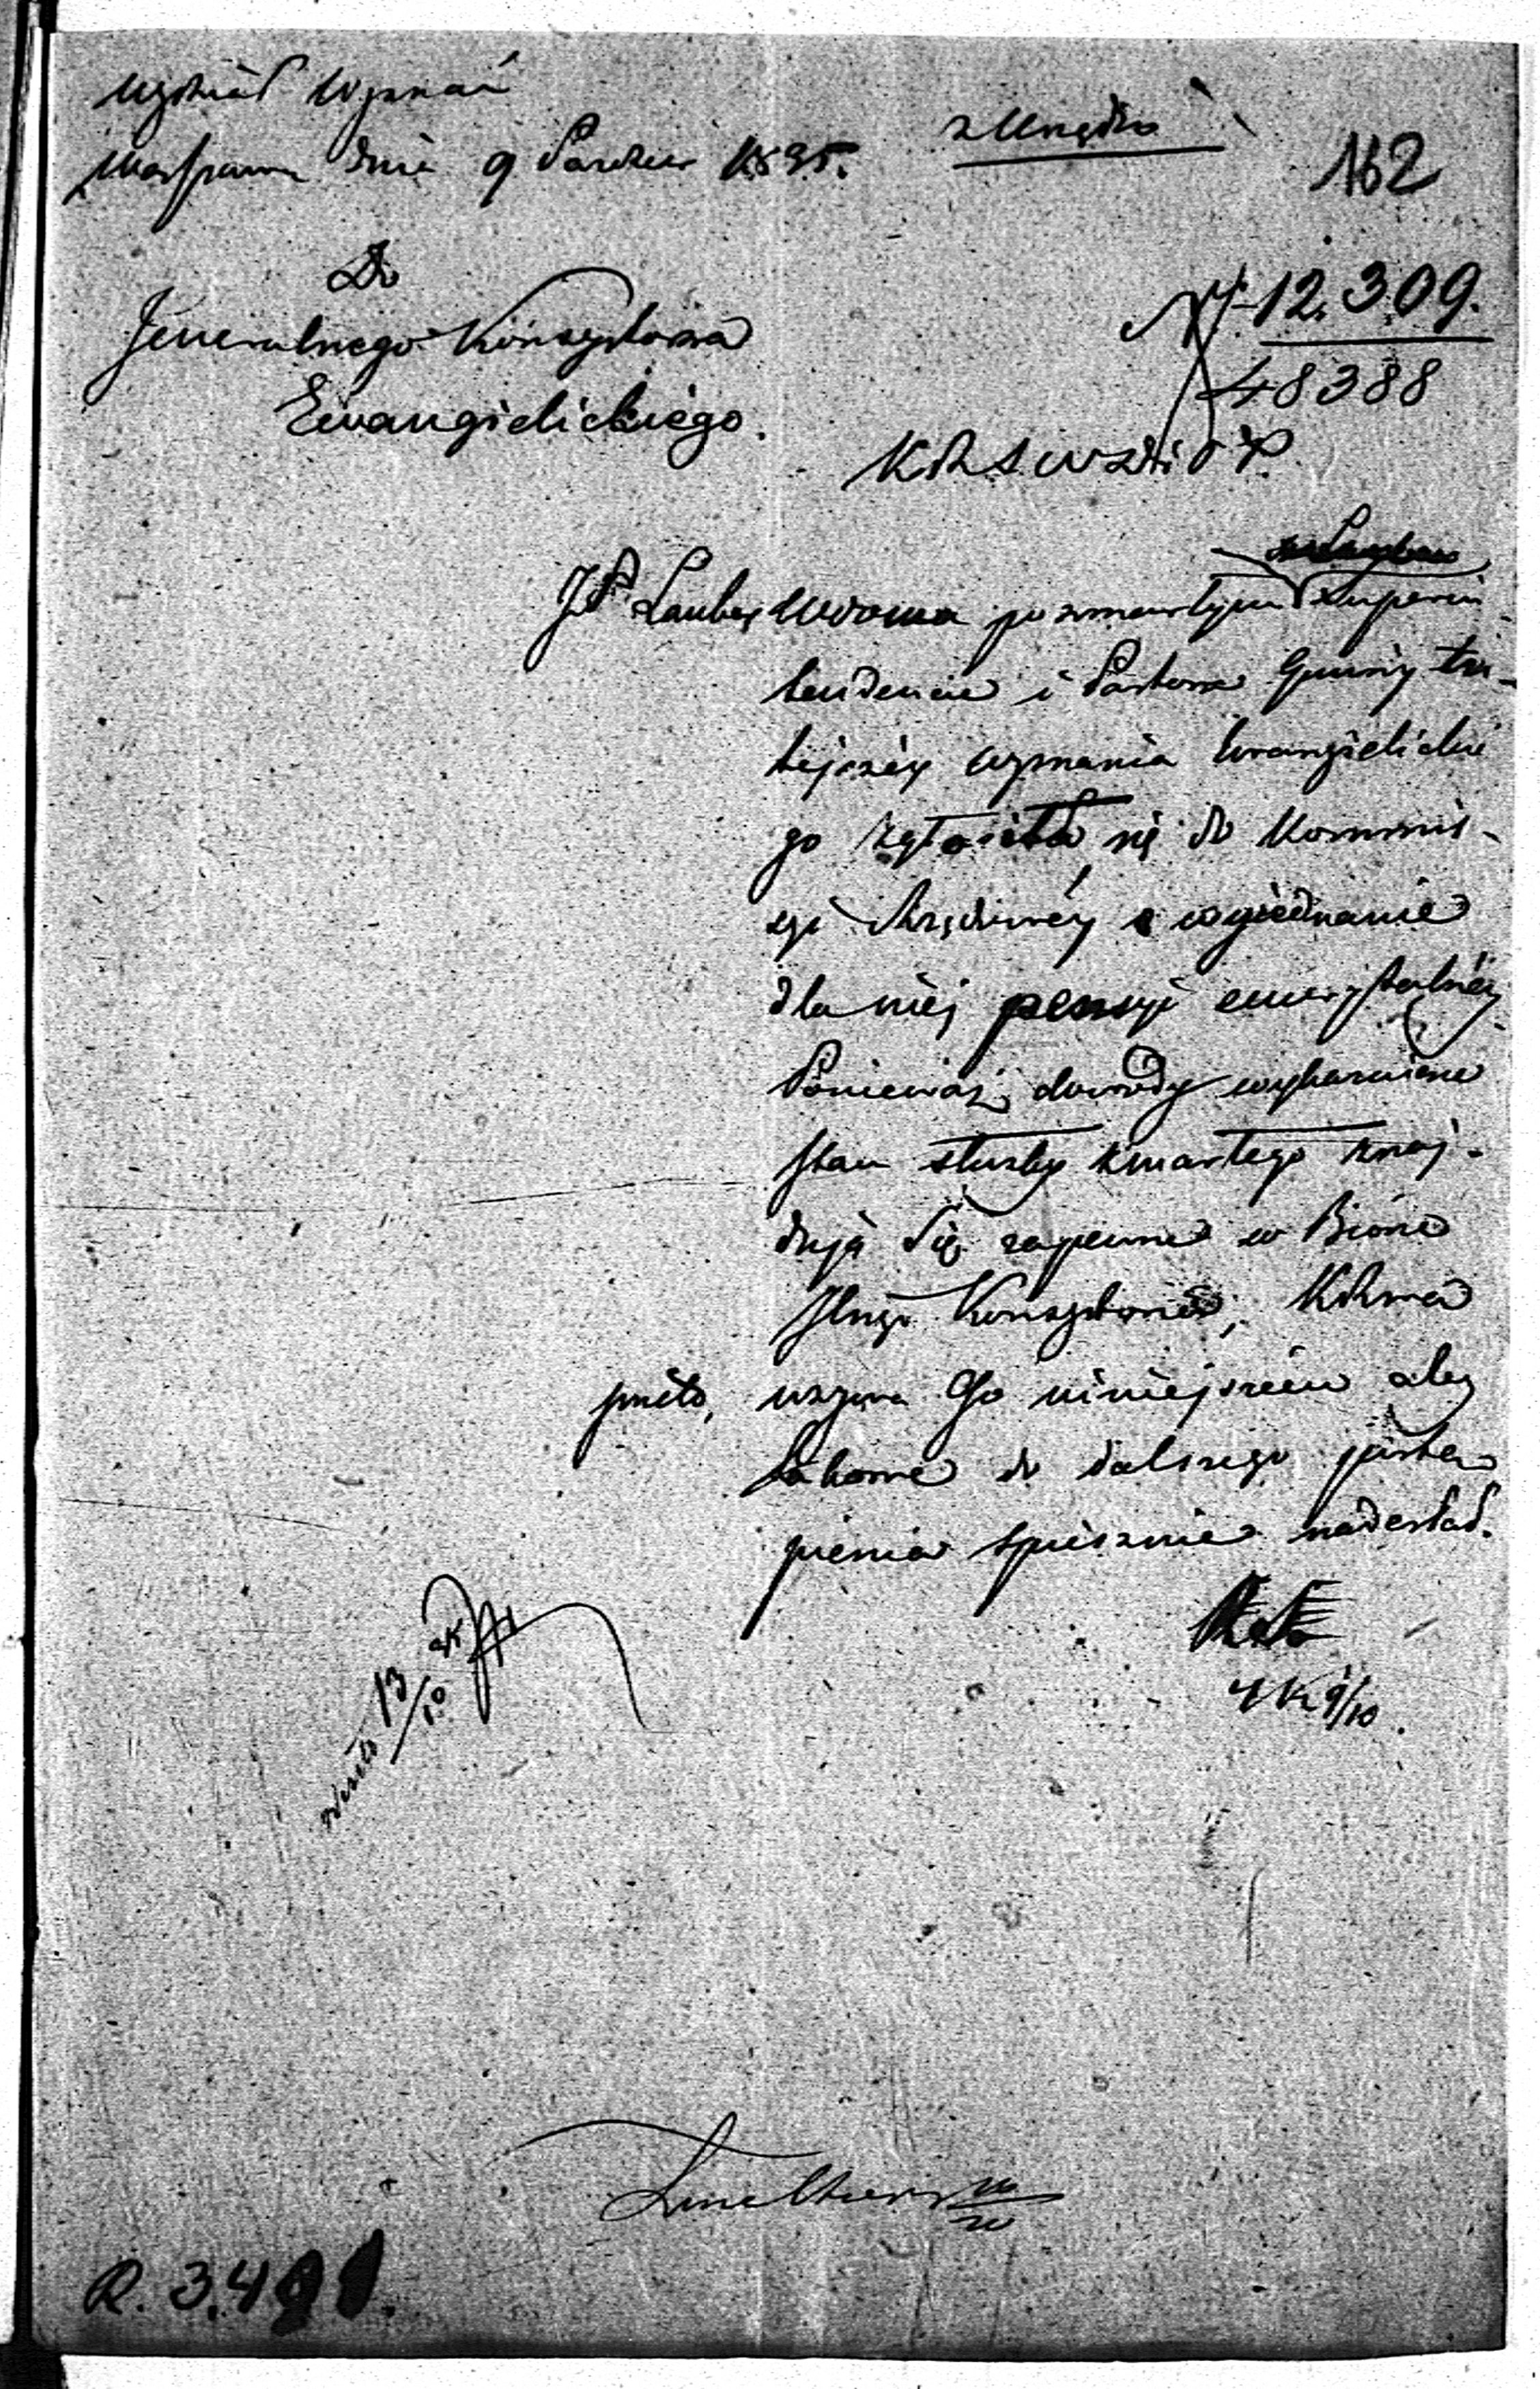 Wydział Wyznań
Warszawa dnia 9 Paździer 1835.
z Urzędu
162
Do
Jeneralnego Konsystorza
Ewangielickiego.
N. 12.309.
48388
K R S W
JP. Lauber Wdowa po zmarłym Superin-
tendencie i Pastorze Gminy tu-
tejszéy wyznania Ewangielickie
go zgłosiła się do Kommis-
syi Rządowéy o wyjednanie
dla niéj pensyi emerytalnéy.
Ponieważ dowody wyjaśniające
stan służby zmarłego znaj-
dują się zapewne w Biórze
Jlnego Konsystorza, K R wa
przeto, wzywa Go niniejszém aby
takowe do dalszego postą-
pienia spiesznie nadesłał.
9/10.
13/10
R. 3.491.